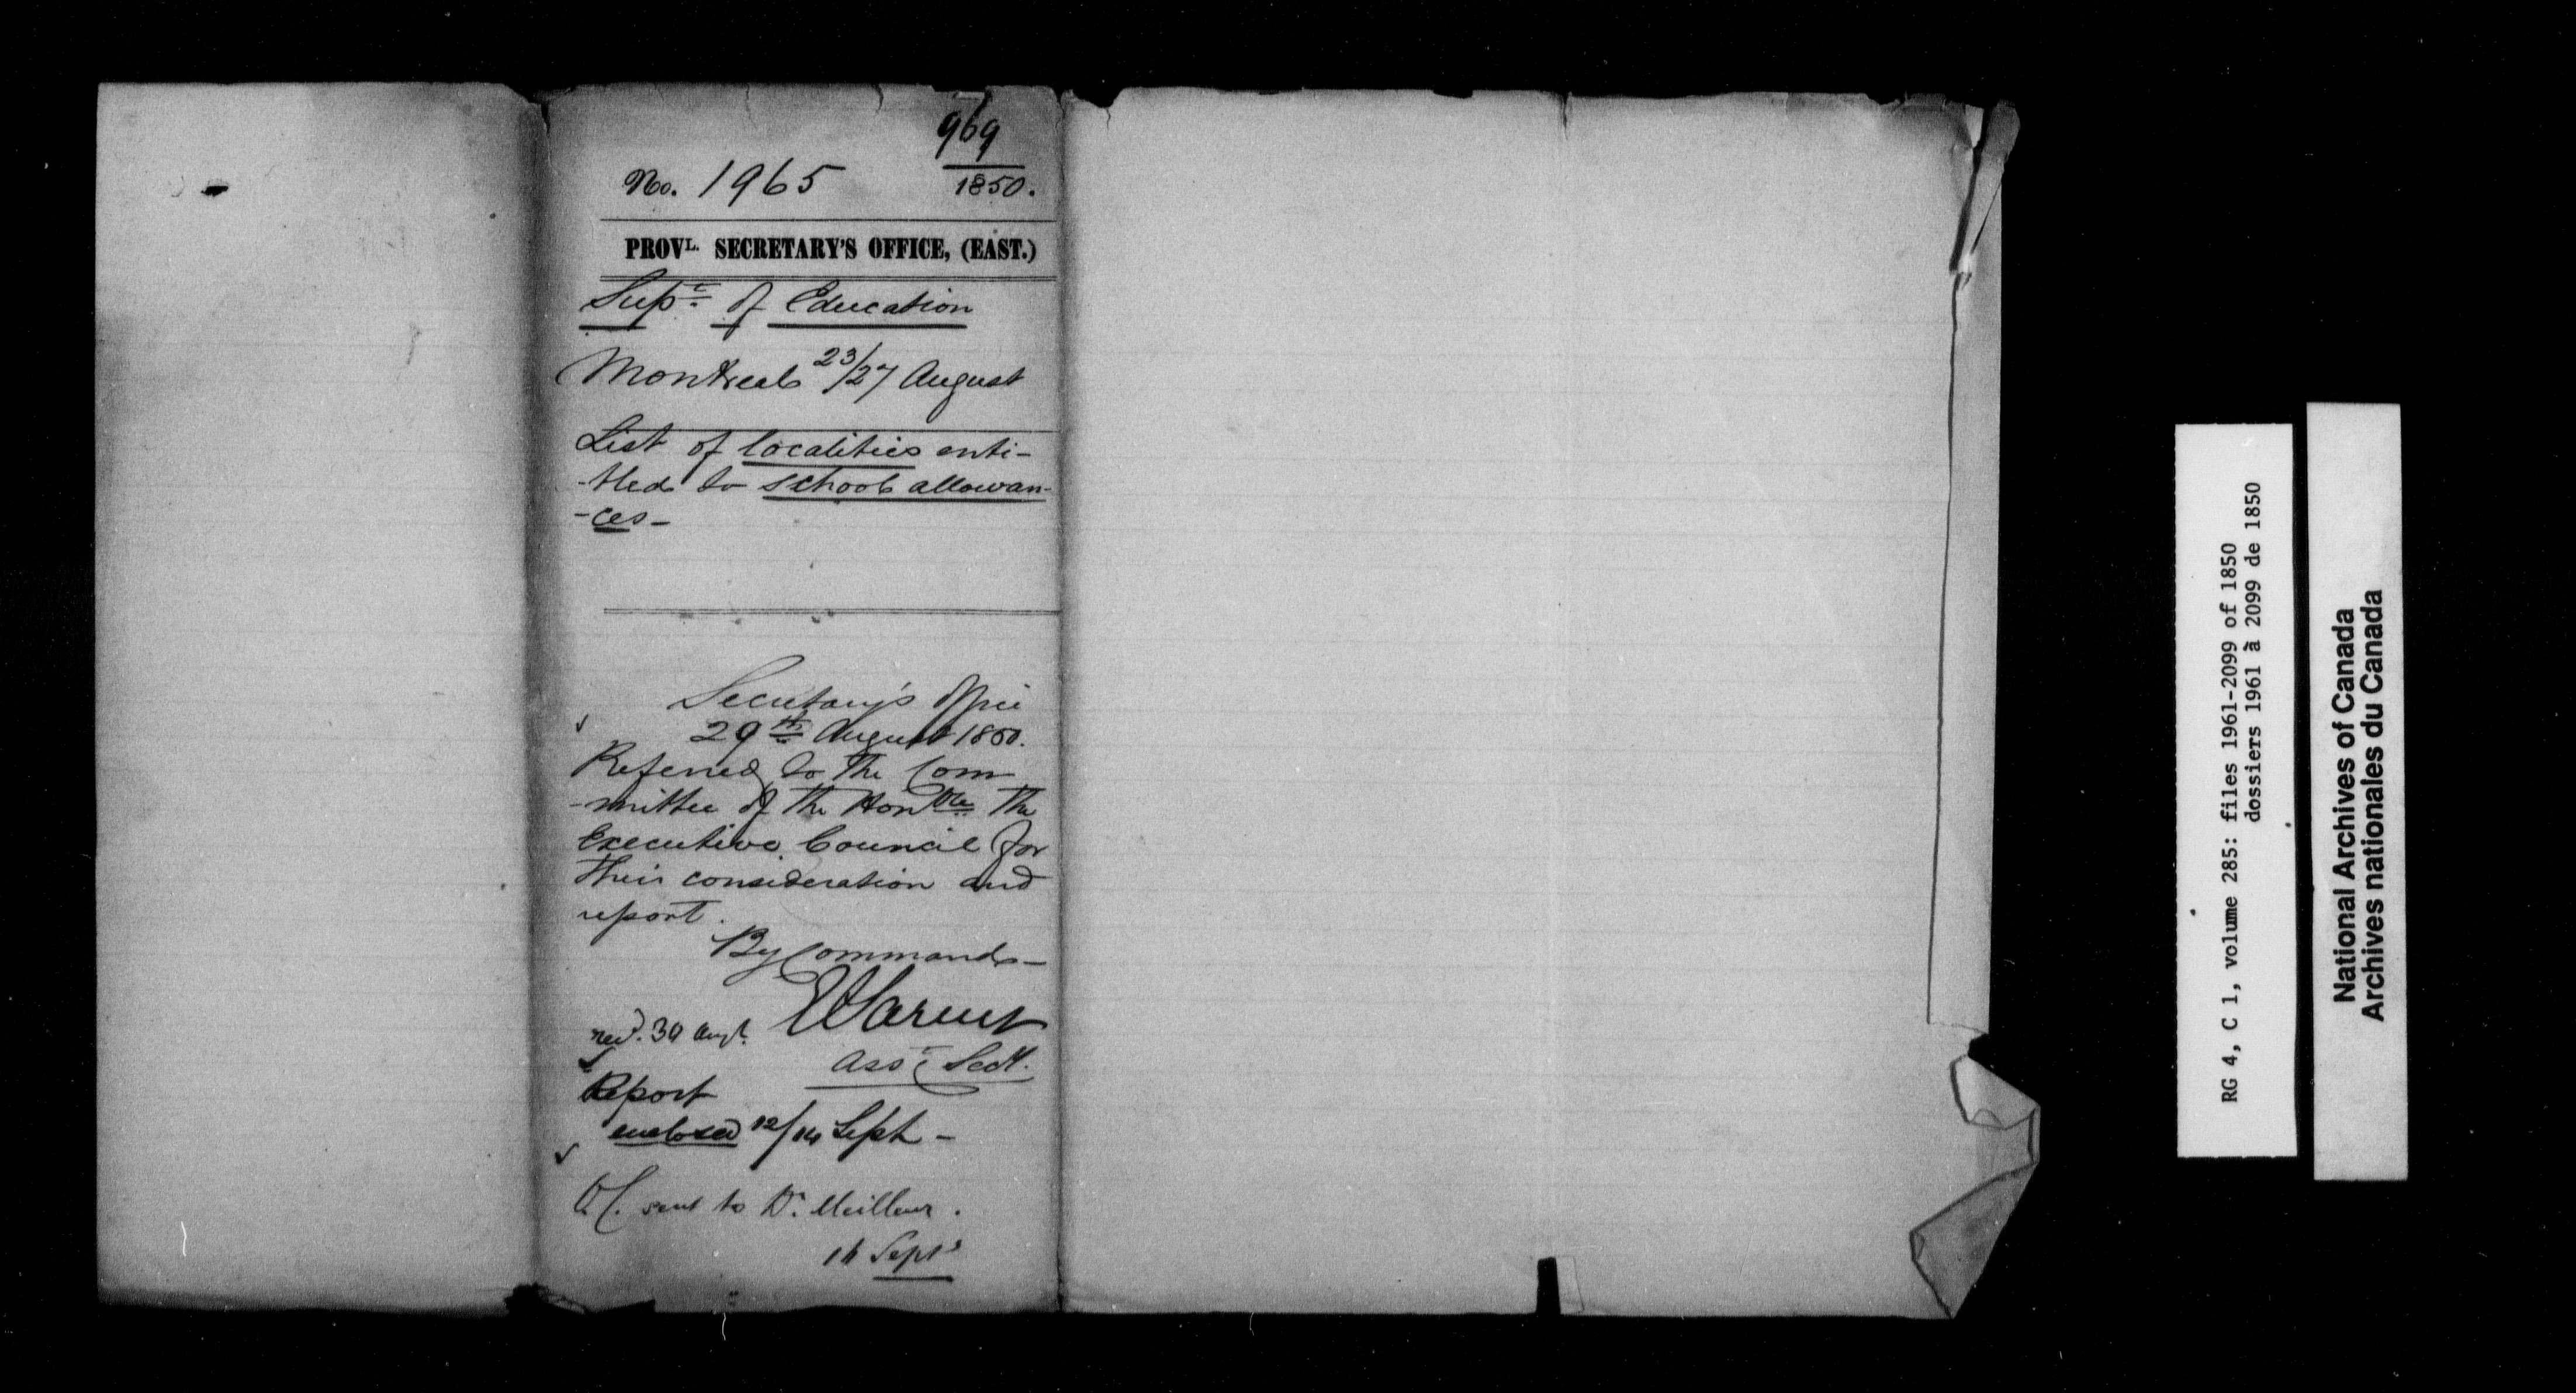 969
No. 1965 1850.
PROVL. SECRETARY'S OFFICE, (EAST.)
Supt. of Education
Montreal 23/27 August
List of localities enti-
-tled to school allowan-
-ces-
Secretary's Office
29th August 1850.
Referred to the Com
-mittee of the Honble. the
Executive Council for
their consideration and
report.
By Command-
E Parent
Asst. Secy.
recd. 30 Augt.
Report
enclosed 12/14 Sept-
sent to Dr. Meilleur.
16 Septr
RG 4, C 1, volume 285: files 1961-2099 of 1850
dossiers 1961 à 2099 de 1850
National Archives of Canada
Archives nationales du Canada